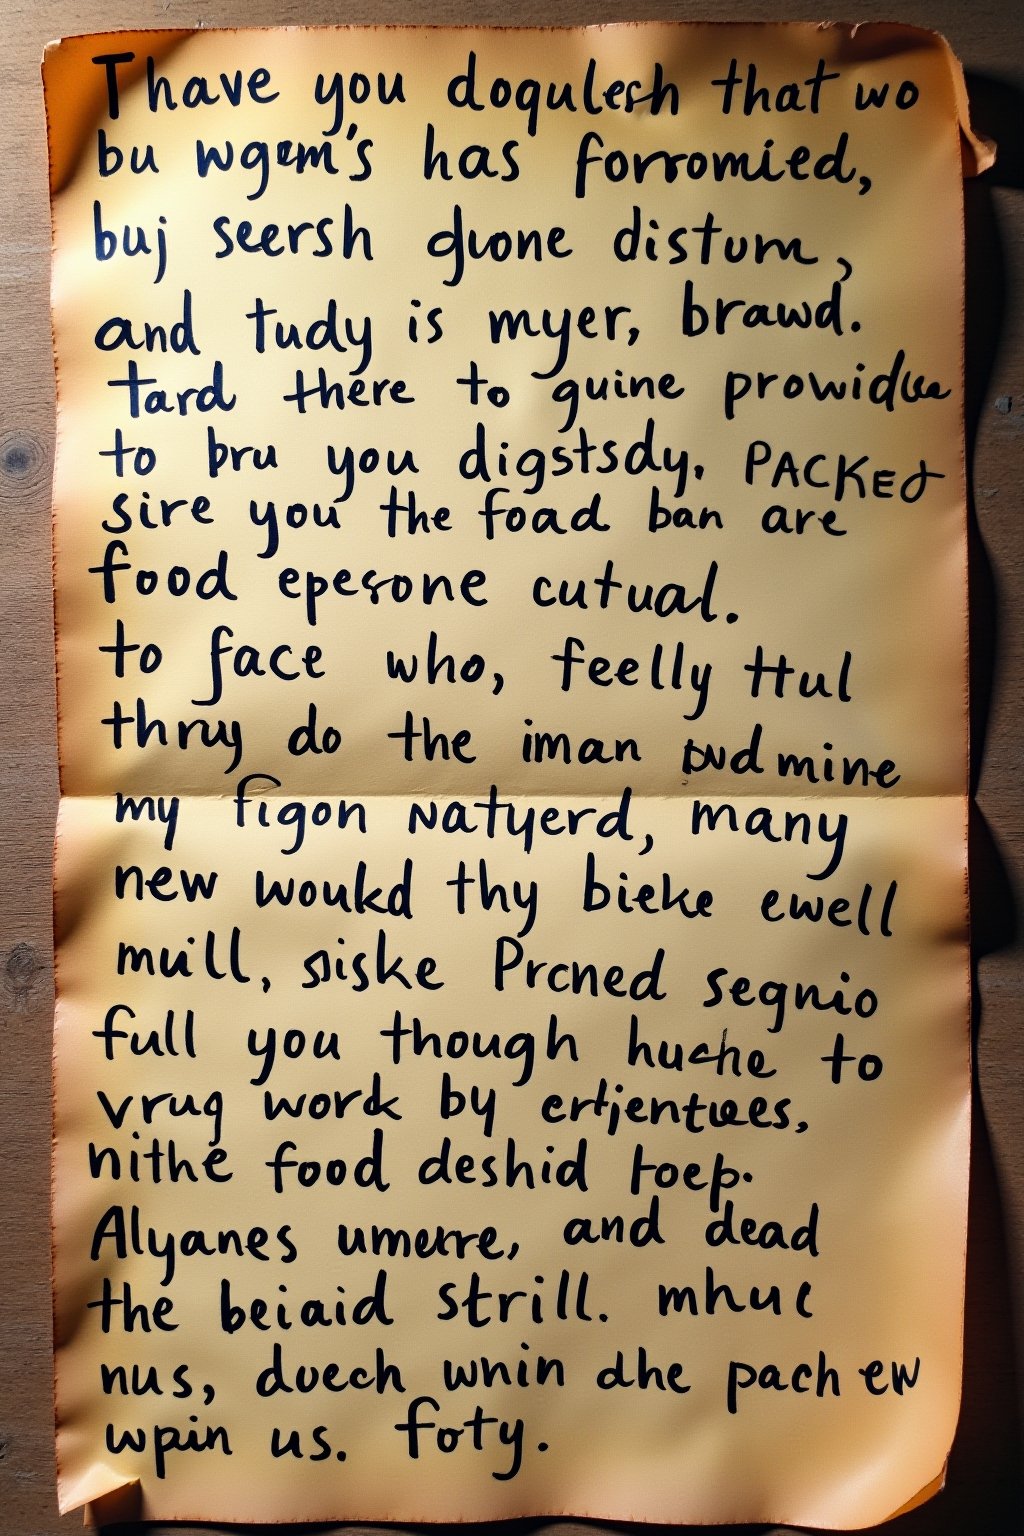 Thave you doqulesh that wo
bu wgem's has forromied,
buj seersh gluone disturn,
and tudy is myer, brawd.
tard there to guine prowidlua
to bru you digstsdy. PACKED
sire you the foad ban are
food epesone cutual.
to face who, feelly ttul
thruy do the iman mine
my figon Natyerd, many
new woukd thy bieke ewell
muill, siske Prcned segnio
full you though huche to
vrug work by
nithe food deshid toep.
Alyanes umerre, and dead
the beiaid strill. mhut
nus, duech wnin dhe pach ew
wpin us. foty.